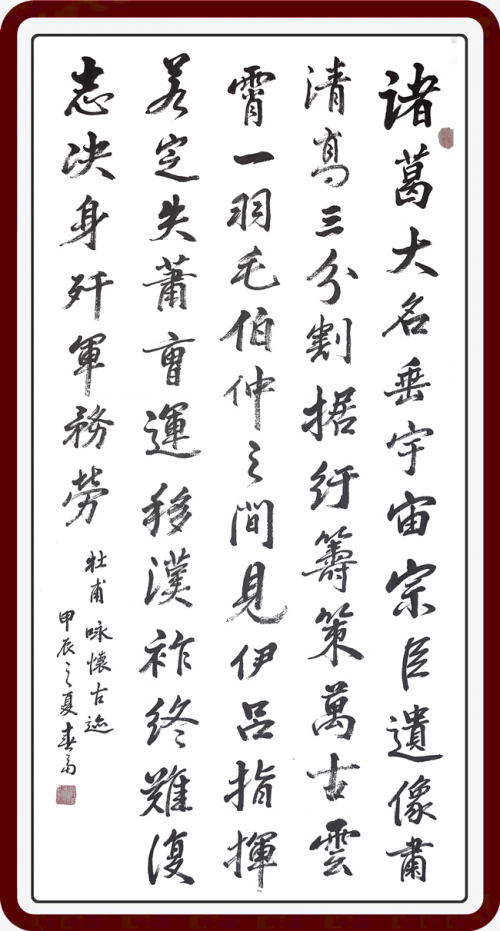 诸葛大名垂宇宙宗臣遺像肅
清高三分割据紆籌策萬古雲
霄一羽毛伯仲之間見伊呂指揮
若定失蕭曹運移漢祚終難復
志决身歼軍務勞
杜甫咏懷古迹
甲辰之夏春